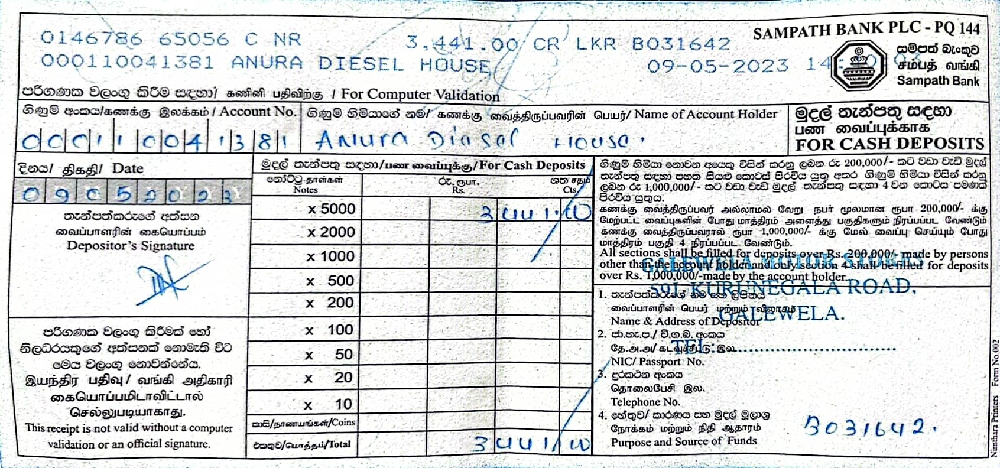 SAMPATH BANK PLC - PQ 144
සම්පත් බැංකුව
சம்பத் வங்கி
Sampath Bank
0146786 65056 C NR 3,441.00 CR LKR B031642
000110041381 ANURA DIESEL HOUSE 09-05-2023 14
පරිගණක වලංගු කිරීම සඳහා/ கணினி பதிவிற்கு / For Computer Validation
ගිණුම් අංකය/கணக்கு இலக்கம் / Account No. ගිණුම් හිමියාගේ නම්/ கணக்கு வைத்திருப்பவரின் பெயர்/ Name of Account Holder
000110041381 Anura Diesel House.
මුදල් තැන්පතු සඳහා
பண வைப்புக்காக
FOR CASH DEPOSITS
දිනය/ திகதி/ Date
09052023
තැන්පත්කරුගේ අත්සන
வைப்பாளரின் கையொப்பம்
Depositor's Signature
පරිගණක වලංගු කිරීමක් හෝ
නිලධරයකුගේ අත්සනක් නොමැති විට
මෙය වලංගු නොවන්නේය.
இயந்திர பதிவு/ வங்கி அதிகாரி
கையொப்பமிடாவிட்டால்
செல்லுபடியாகாது.
This receipt is not valid without a computer
validation or an official signature.
මුදල් තැන්පතු සඳහා/பண வைப்புக்கு/For Cash Deposits
නෝට්ටු தாள்கள் Notes රු. ரூபா. Rs. ශත சதம் Cts.
x 5000 3441.00
x 2000
x 1000
x 500
x 200
x 100
x 50
x 20
x 10
කාසි/நாணயங்கள்/Coins
එකතුව/மொத்தம்/Total 3441/00
ගිණුම් හිමියා නොවන අයෙකු විසින් කරනු ලබන රු 200,000/- කට වඩා වැඩි මුදල්
තැන්පතු සඳහා පහත සියළු කොටස් පිරවිය යුතු අතර ගිණුම් හිමියා විසින් කරනු
ලබන රු 1,000,000/- කට වඩා වැඩි මුදල් තැන්පතු සඳහා 4 වන කොටස පමණක්
පිරවිය යුතුය.
கணக்கு வைத்திருப்பவர் அல்லாமல் வேறு நபர் மூலமான ரூபா 200,000/- க்கு
மேற்பட்ட வைப்புகளின் போது மாத்திரம் அனைத்து பகுதிகளும் நிரப்பப்பட வேண்டும்
கணக்கு வைத்திருப்பவரால் ரூபா 1,000,000/- க்கு மேல் வைப்பு செய்யும் போது
மாத்திரம் பகுதி 4 நிரப்பப்பட வேண்டும்.
All sections shall be filled for deposits over Rs. 200,000/- made by persons
other than the account holder and only section 4 shall be filled for deposits
over Rs. 1,000,000/-made by the account holder.
GALEWELA MOTOR
591, KURUNEGALA ROAD,
GALEWELA.
TEL:
1. තැන්පත්කරුගේ නම සහ ලිපිනය
வைப்பாளரின் பெயர் மற்றும் விலாசம்
Name & Address of Depositor
2. ජා.හැ.ප./ වි.ග.බ. අංකය
தே.அ.அ/ கடவுச்சீட்டு இல.
NIC/ Passport No.
3. දුරකථන අංකය
தொலைபேசி இல.
Telephone No.
4. හේතුව/ කාරණය සහ මුදල් මූලාශ්‍ර
நோக்கம் மற்றும் நிதி ஆதாரம்
Purpose and Source of Funds
B031642.
Nimthara Printers Form No.002